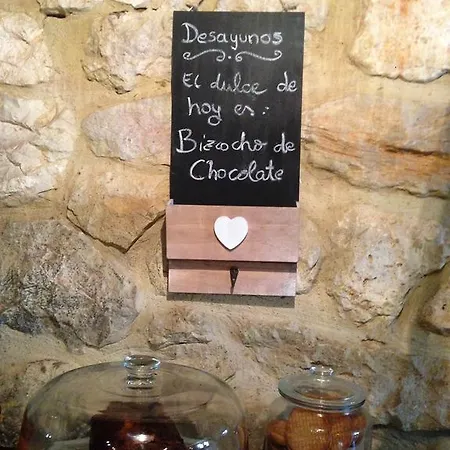 Desayunos
El dulce de
hoy es:
Bizcocho de
Chocolate